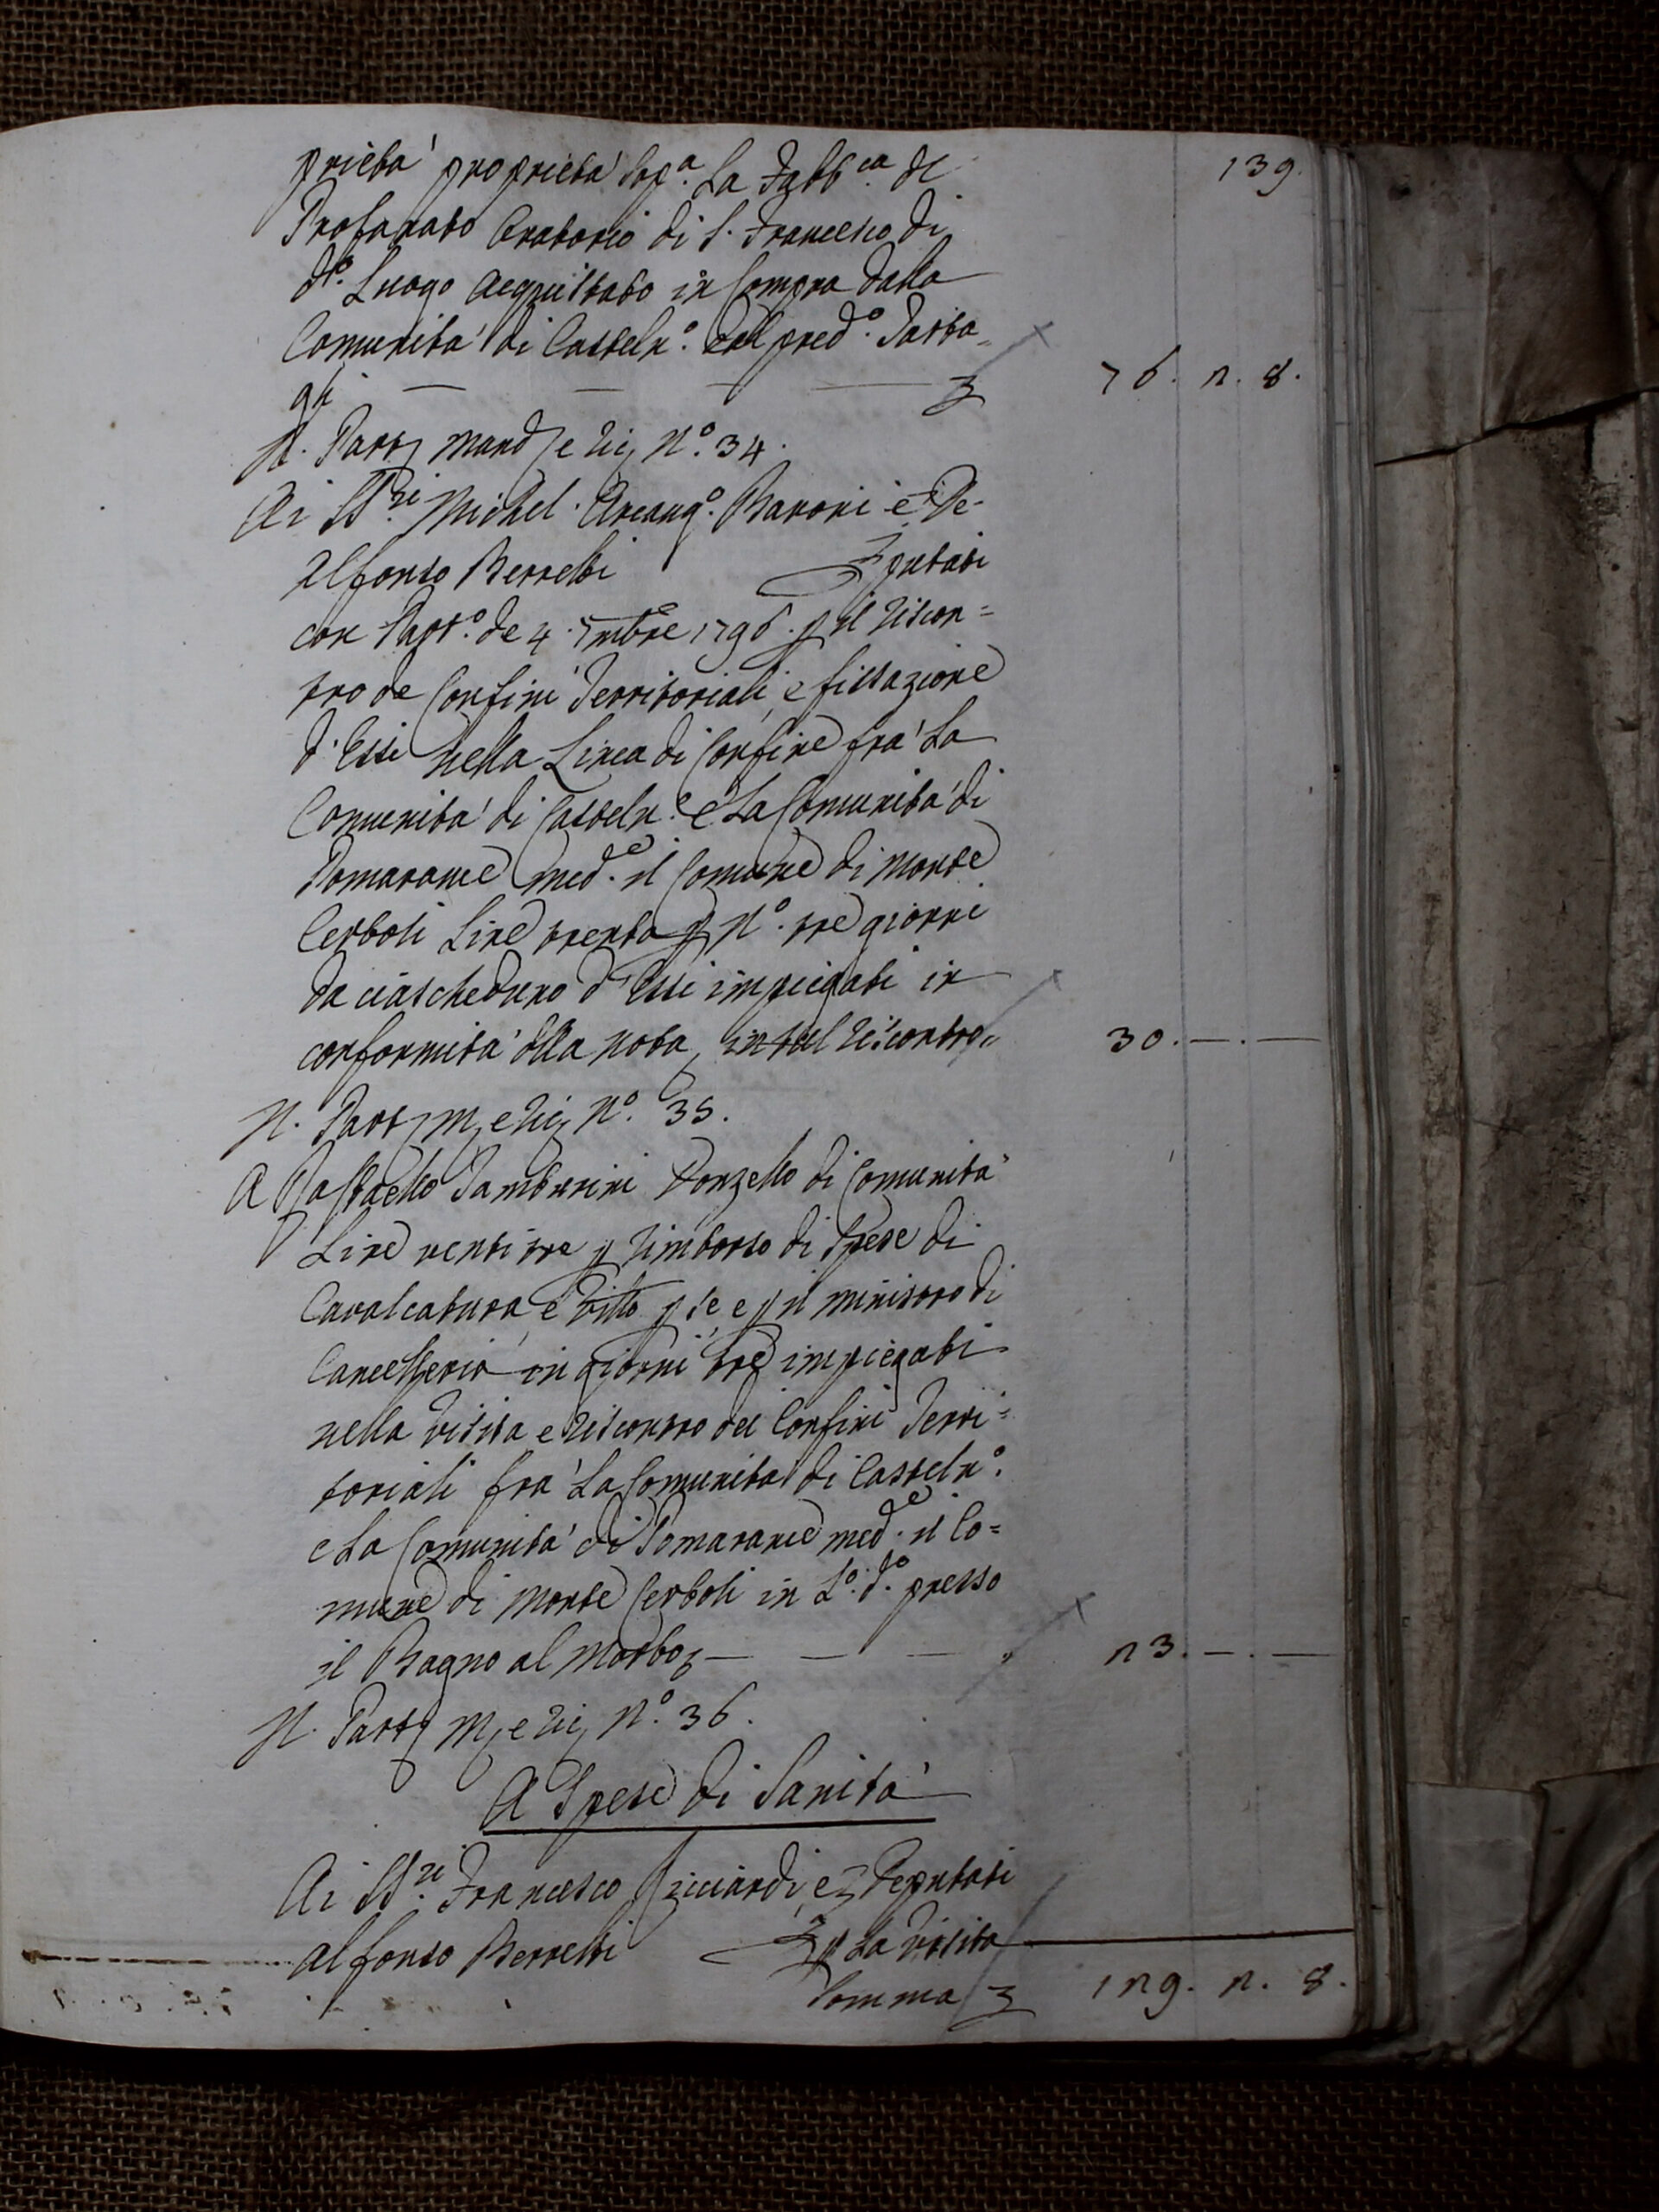 139.
prietà proprietà Sop.ª La Fabb.ca del
Profanato Oratorio di S. Francesco di
d.º Luogo acquistato in Compra dalla
Comunità di Casteln.º dal pred.º Tarba=
gli — — — — 76. 2. 8.
N. Part, mand, e Ric, N.º 34.
Ai SS.ri Michel. Arcang.º Baroni e De-
Alfonso Berretti putati
con Part.º de 4. 7mbre 1796. p il riscon=
tro de Confini Territoriali, e fissazione
d'Essi nella Linea di Confine frà La
Comunità di Casteln.º e La Comunità di
Pomarance med.e il Comune di Monte
Cerboli Lire trenta p N.º tre giorni
da ciascheduno d'Essi impiegati in
conformità della nota, in tal riscontro„ 30. —. —
N. Part, M, e Ric, N.º 35.
A Raffaello Tamburini Donzello di Comunità
Lire venti tre p rimborso di Spese di
Cavalcatura, e Vitto p se, e p il ministro di
Cancelleria in giorni tre impiegati
nella visita e riscontro dei Confini Terri=
toriali frà La Comunità di Casteln.º
e La Comunità di Pomarance med.e il Co=
mune di Monte Cerboli in L.º d.º presso
il Bagno al Morbo — — — 23. —. —
N. Part, M, e Ric, N.º 36.
A Spese di Sanità
Ai SS.ri Francesco Ricciardi, e Deputati
Alfonso Berretti p La Visita
Somma 129. 2. 8.